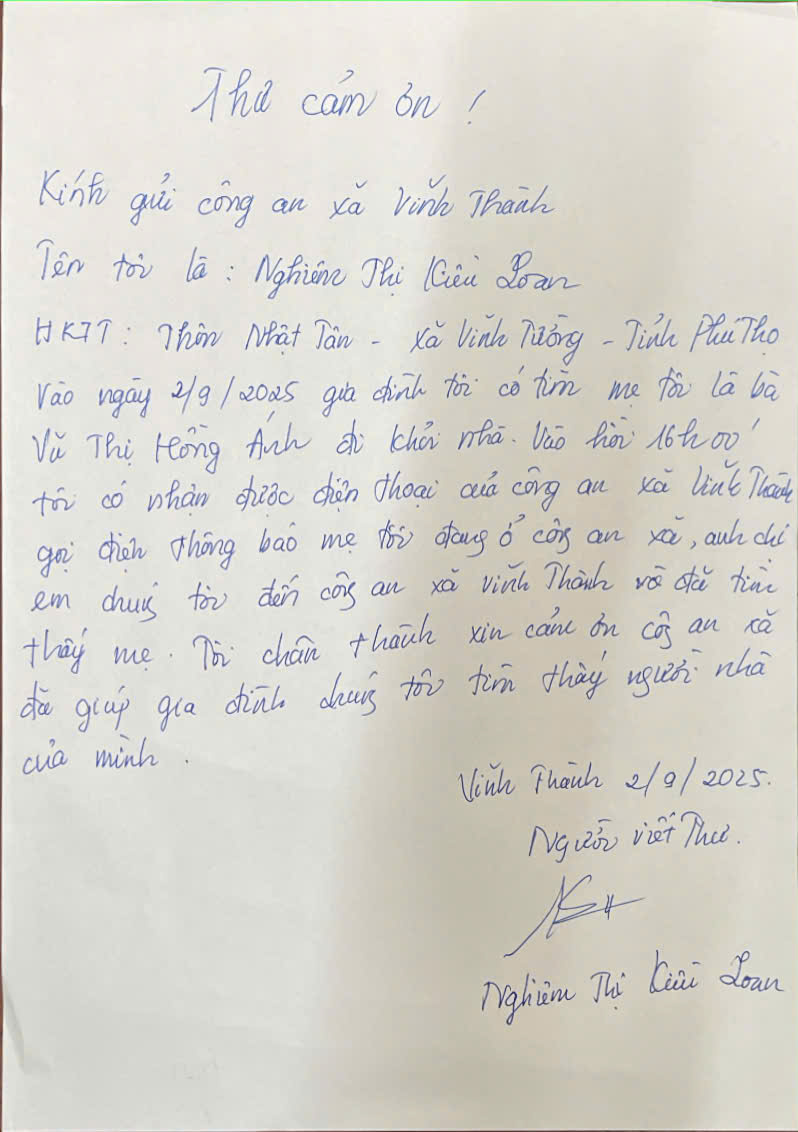 Thư cảm ơn !
Kính gửi công an xã Vĩnh Thành
Tên tôi là : Nghiêm Thị Kiều Loan
HKTT : Thôn Nhật Tân - xã Vĩnh Tường - Tỉnh Phú Thọ
Vào ngày 2/9/2025 gia đình tôi có tìm mẹ tôi là bà
Vũ Thị Hồng Ánh đi khỏi nhà. Vào hồi 16h00'
tôi có nhận được điện thoại của công an xã Vĩnh Thành
gọi điện thông báo mẹ tôi đang ở công an xã, anh chị
em chúng tôi đến công an xã Vĩnh Thành và đã tìm
thấy mẹ. Tôi chân thành xin cảm ơn công an xã
đã giúp gia đình chúng tôi tìm thấy người nhà
của mình .
Vĩnh Thành 2/9/2025.
Người viết Thư.
Nghiêm Thị Kiều Loan